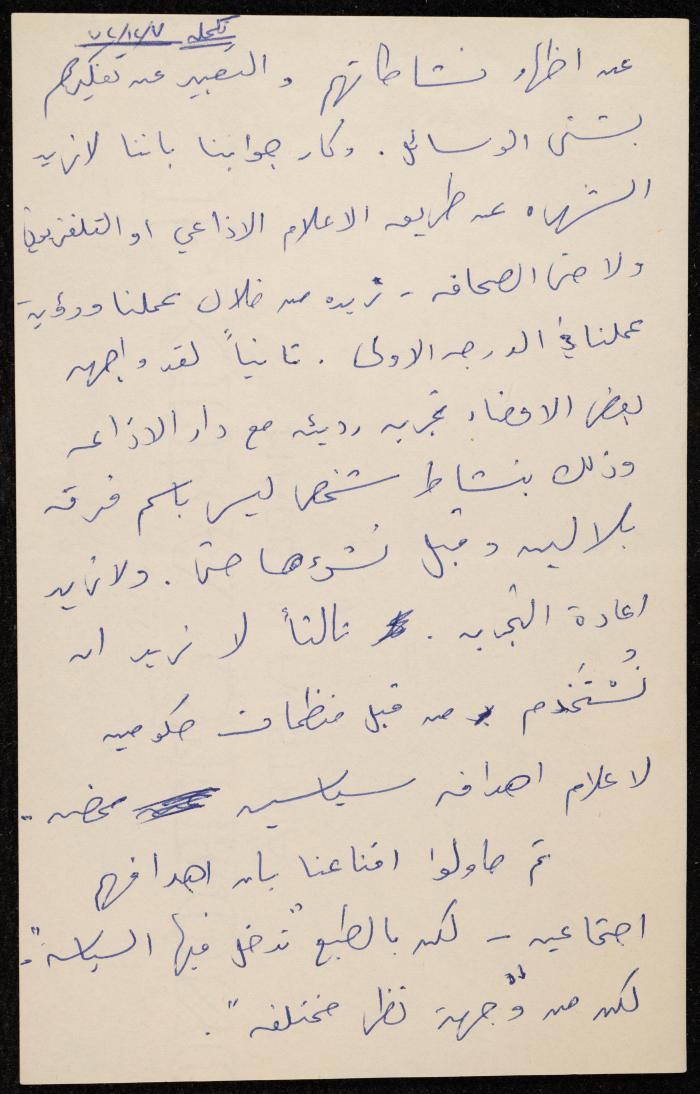 تكملة ٧٢/١٢/٧
عن اظهار نشاطاتهم و التعبير عن تفكيرهم
بشتى الوسائل . وكان جوابنا باننا لا نريد
الشهره عن طريق الاعلام الاذاعي او التلفزيوني
ولا حتى الصحافه - نريده من خلال عملنا ورؤية
عملنا في الدرجه الاولى . ثانياً لقد واجهه
بعض الاعضاء تجربه رديئه مع دار الاذاعه
وذلك بنشاط شخصي ليس باسم فرقه
بلالين وقبل نشوءها حتى . ولا نريد
اعادة التجربه . ثالثاً لا نريد ان
نُسْتَخدَم من قبل منظمات حكوميه
لاعلام اهداف سياسيه محضه .
ثم حاولوا اقناعنا بان اهدافهم
اجتماعيه - لكن بالطبع "تدخل فيها السياسه" .
لكن من "وجهة نظر مختلفه" .